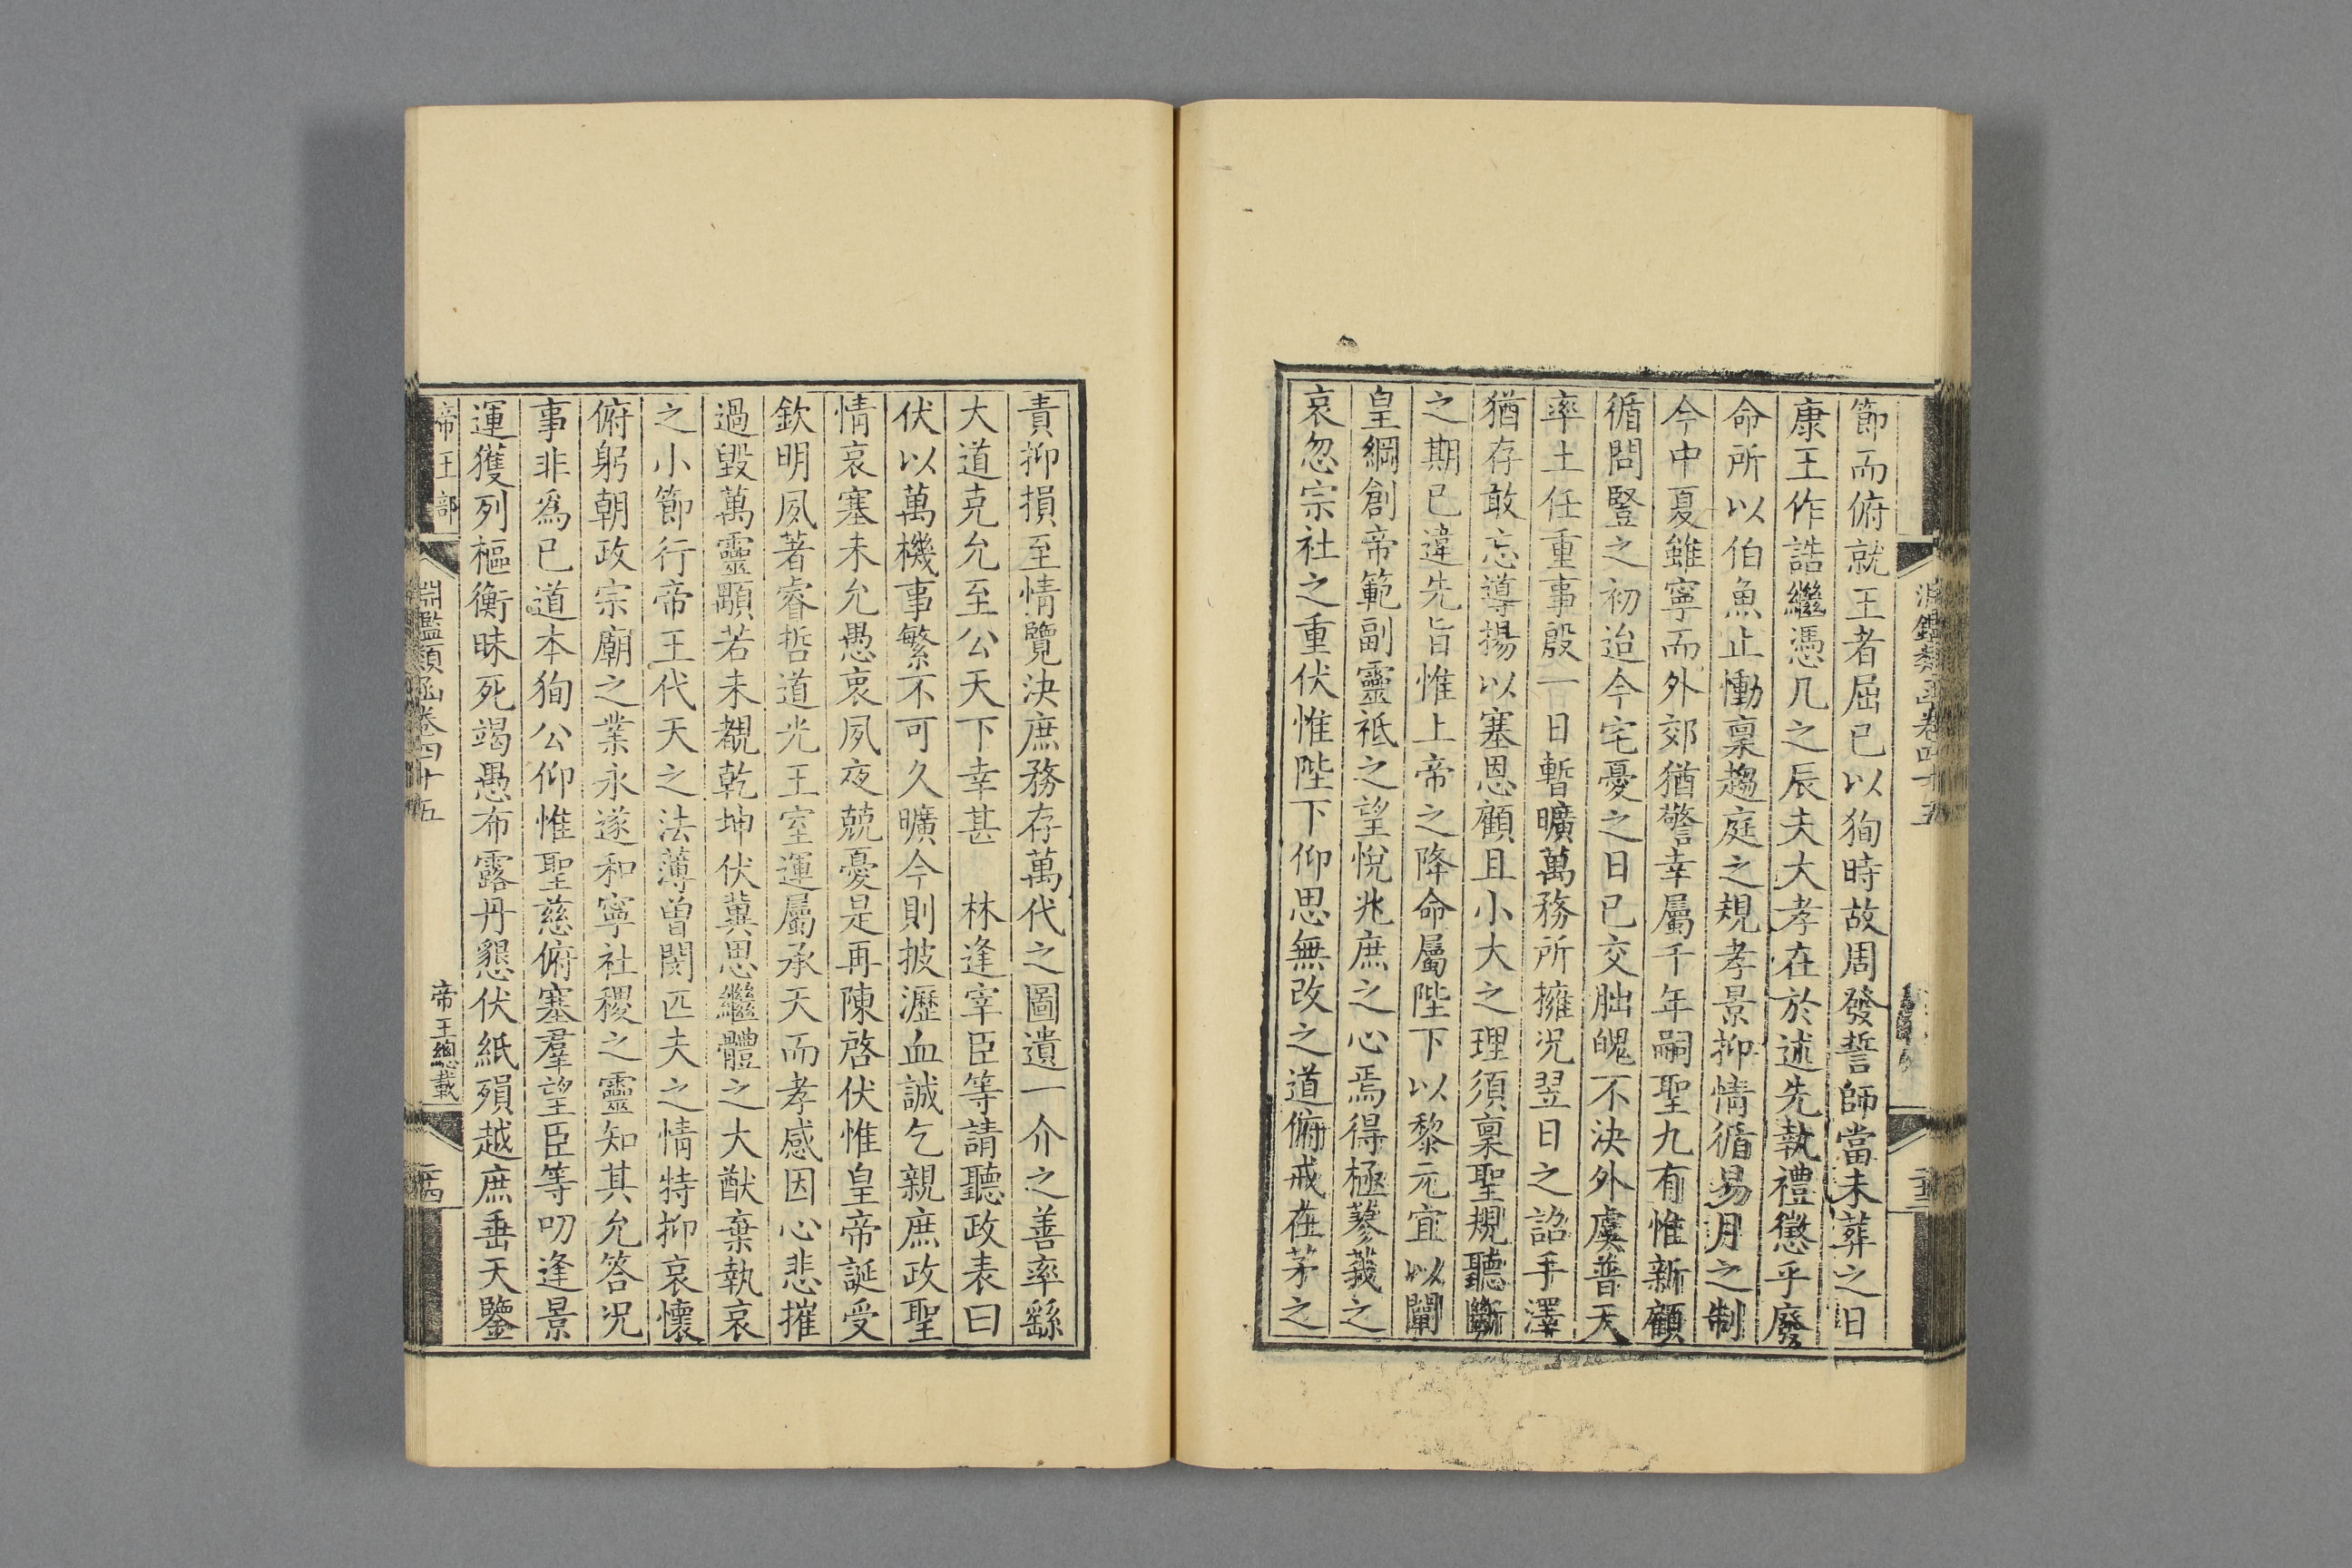 節而俯就王者屈已以狥時故周發誓師當未葬之日
康王作誥繼憑几之辰夫大孝在於述先執禮懲乎廢
命所以伯魚止慟稟趨庭之規孝景抑情循易月之制
今中夏雖寧而外郊猶警幸屬千年嗣聖九有惟新顧
循問豎之初迨今宅憂之日已交朏魄不決外虞普天
率土任重事殷一日暫曠萬務所擁況翌日之詔手澤
猶存敢忘導揚以塞恩顧且小大之理須稟聖規聽斷
之期已違先旨惟上帝之降命屬陛下以黎元宜以闡
皇綱創帝範副靈祗之望悅兆庶之心焉得極蓼莪之
哀忽宗社之重伏惟陛下仰思無改之道俯戒在茅之
責抑損至情覽決庶務存萬代之圖遺一介之善率繇
大道克允至公天下幸甚　林逢宰臣等請聽政表曰
伏以萬機事繁不可久曠今則披瀝血誠乞親庶政聖
情哀塞未允愚衷夙夜兢憂是再陳啓伏惟皇帝誕受
欽明夙著睿哲道光王室運屬承天而孝感因心悲摧
過毀萬靈顒若未覩乾坤伏冀思繼體之大猷棄執哀
之小節行帝王代天之法薄曾閔匹夫之情特抑哀懷
俯躬朝政宗廟之業永遂和寧社稷之靈知其允答況
事非爲已道本狥公仰惟聖慈俯塞羣望臣等叨逢景
運獲列樞衡昧死竭愚布露丹懇伏紙殞越庶垂天鑒
帝王部
淵鑑類函卷四十五
帝王總載
二十四